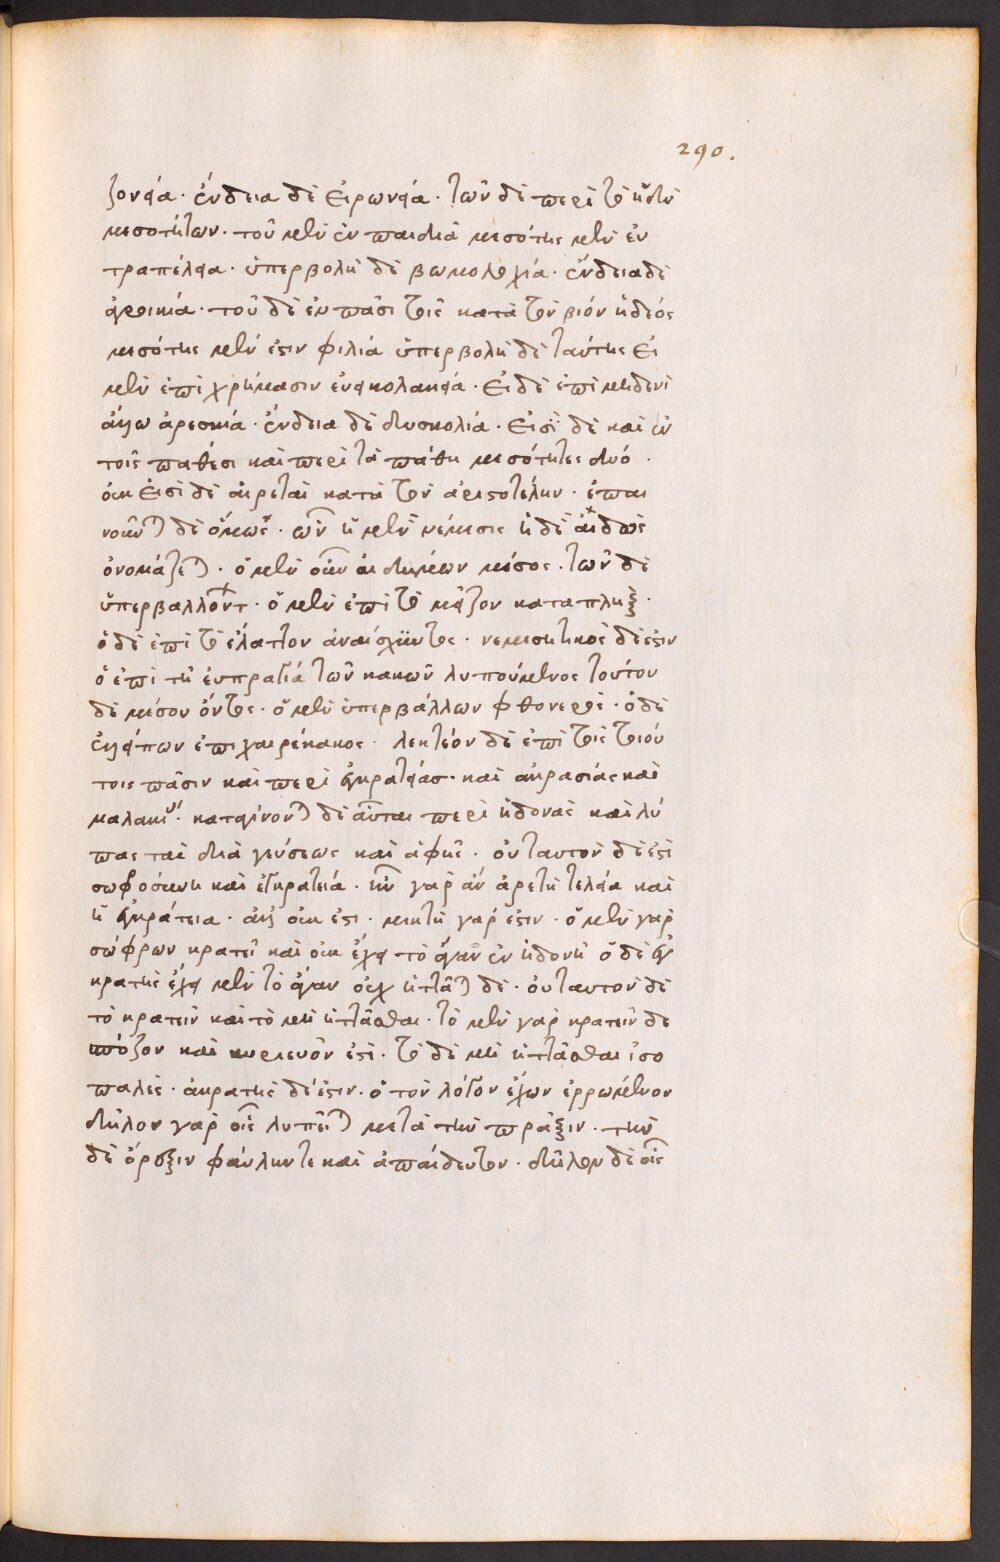 290.
ζονεία· ἔνδεια δὲ εἰρωνεία· τῶν δὲ περὶ τὸ ἡδὺ
μεσοτήτων· τοῦ μὲν ἐν παιδιᾶ μεσότης μὲν εὐ
τραπέλεια· ὑπερβολὴ δὲ βωμολοχία· ἔνδεια δὲ
ἀγροικία· τοῦ δὲ ἐν πᾶσι τοῖς κατὰ τὸν βίον ἡδέος
μεσότης μέν ἐστιν φιλία ὑπερβολὴ δὲ ταύτης εἰ
μὲν ἐπὶ χρήμασιν εὐκολακεία· εἰ δὲ ἐπὶ μηδενὶ
ἄλλω ἀρεσκία· ἔνδεια δὲ δυσκολία· εἰσὶ δὲ καὶ ἐν
τοῖς παθέσι καὶ περὶ τὰ πάθη μεσότητες δυό·
οὐκ εἰσὶ δὲ ἀρεταὶ κατὰ τὸν ἀριστοτέλην· ἐπαι
νοῦνται δὲ ὅμως· ὧν ἡ μὲν νέμεσις ἡ δὲ αἰδὼς
ὀνομάζεται· ὁ μὲν οὖν αἰδήμων μέσος· τῶν δὲ
ὑπερβαλλόντ· ὁ μὲν ἐπὶ τὸ μεῖζον καταπλὴξ·
ὁ δὲ ἐπὶ τὸ ἔλαττον ἀναίσχυντος· νεμεσητικὸς δέ ἐστιν
ὁ ἐπὶ τῇ εὐπραγία τῶν κακῶν λυπούμενος τούτου
δὲ μέσου ὄντος· ὁ μὲν ὑπερβάλλων φθονερός· ὁ δὲ
ἐλλείπων ἐπιχαιρέκακος· λεκτέον δὲ ἐπὶ τοῖς τοιού
τοις πᾶσιν καὶ περὶ ἐγκρατείας· καὶ ἀκρασίας καὶ
μαλακι· κατγίνονται δὲ αὗται περὶ ἡδονὰς καὶ λύ
πας τὰς διὰ γεύσεως καὶ ἀφῆς· οὐ ταυτὸν δέ ἐστι
σωφροσύνη καὶ ἐγκρατειά· ἦν γὰρ ἂν ἀρετὴ τελεία καὶ
ἡ ἐγκράτεια· ἀλλ' οὐκ ἔστι· μικτὴ γάρ ἐστιν· ὁ μὲν γὰρ
σώφρων κρατεῖ καὶ οὐκ ἔχει τὸ ἄγαν ἐν ἡδονῆ ὁ δὲ ἐγ
κρατὴς ἔχει μὲν τὸ ἄγαν οὐχ ἡττᾶται δὲ· οὐ ταυτὸν δὲ
τὸ κρατεῖν καὶ τὸ μὴ ἡττᾶσθαι· τὸ μὲν γὰρ κρατεῖν δε
σπόζον καὶ κυριευόν ἐστι· τὸ δὲ μὴ ἡττᾶσθαι ἰσο
παλὲς· ἀκρατὴς δέ ἐστιν· ὁ τὸν λόγον ἔχων ἐρρωμένον
δῆλον γὰρ οἷς λυπεῖται μετὰ τὴν πρᾶξιν· τὴν
δὲ ὄρεξιν φαύλην τε καὶ ἀπαίδευτον· δῆλον δὲ οἷς